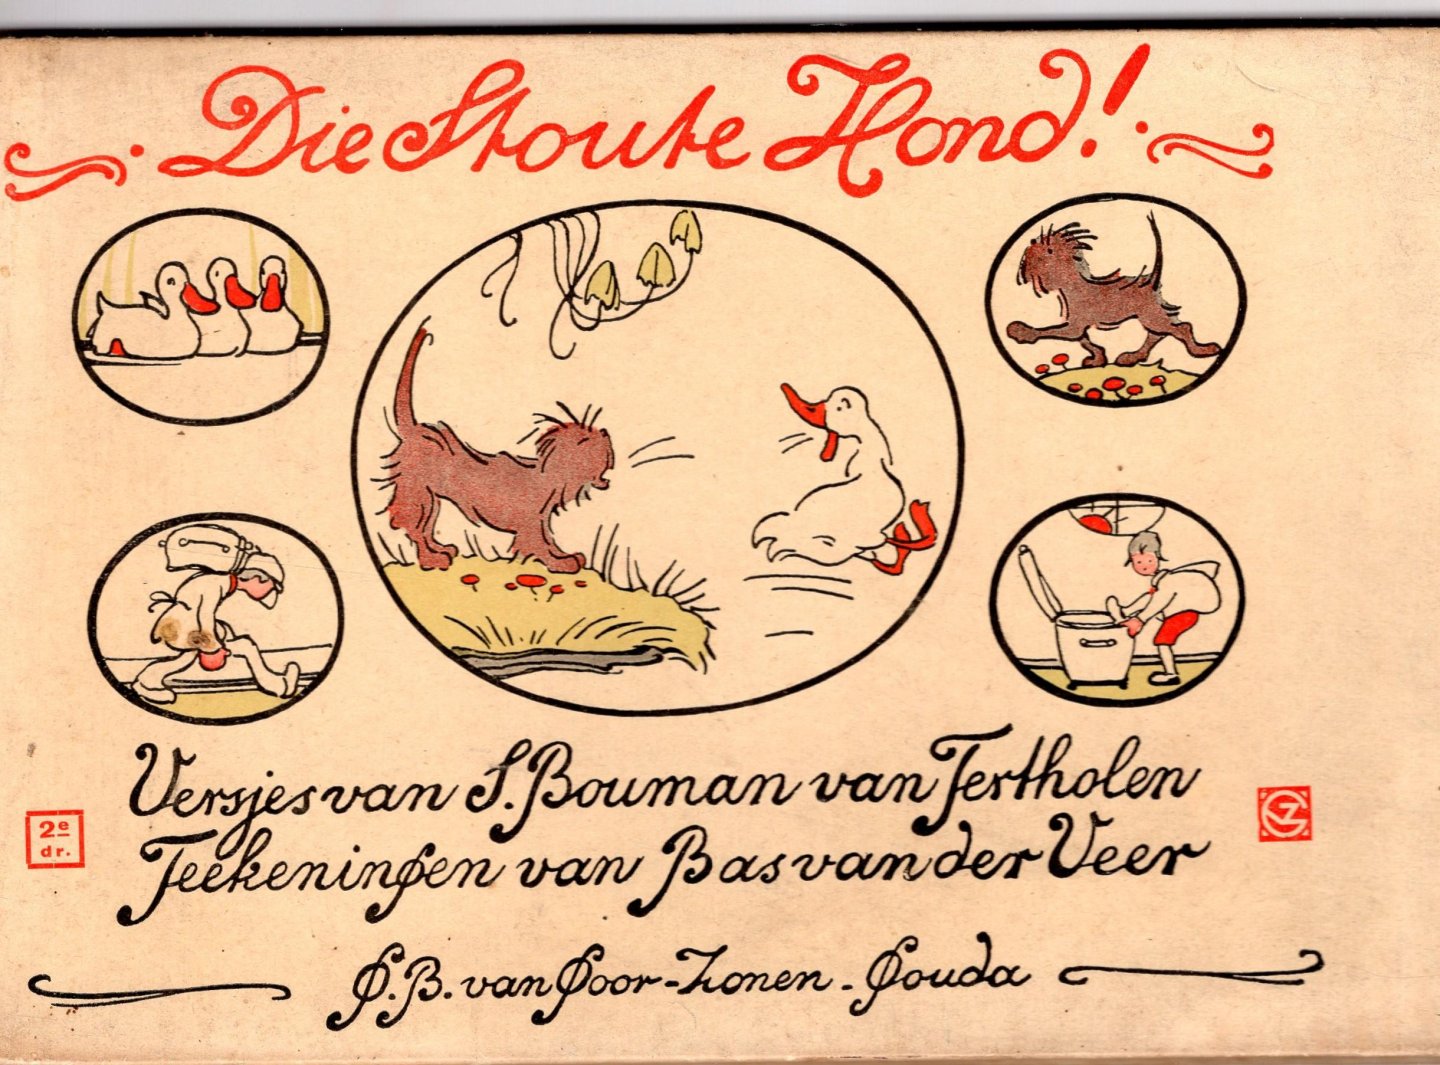 Die Stoute Hond!
Versjes van S. Bouman van Tertholen
2e
dr.
Teekeningen van Bas van der Veer
G.B. van Goor - Zonen - Gouda